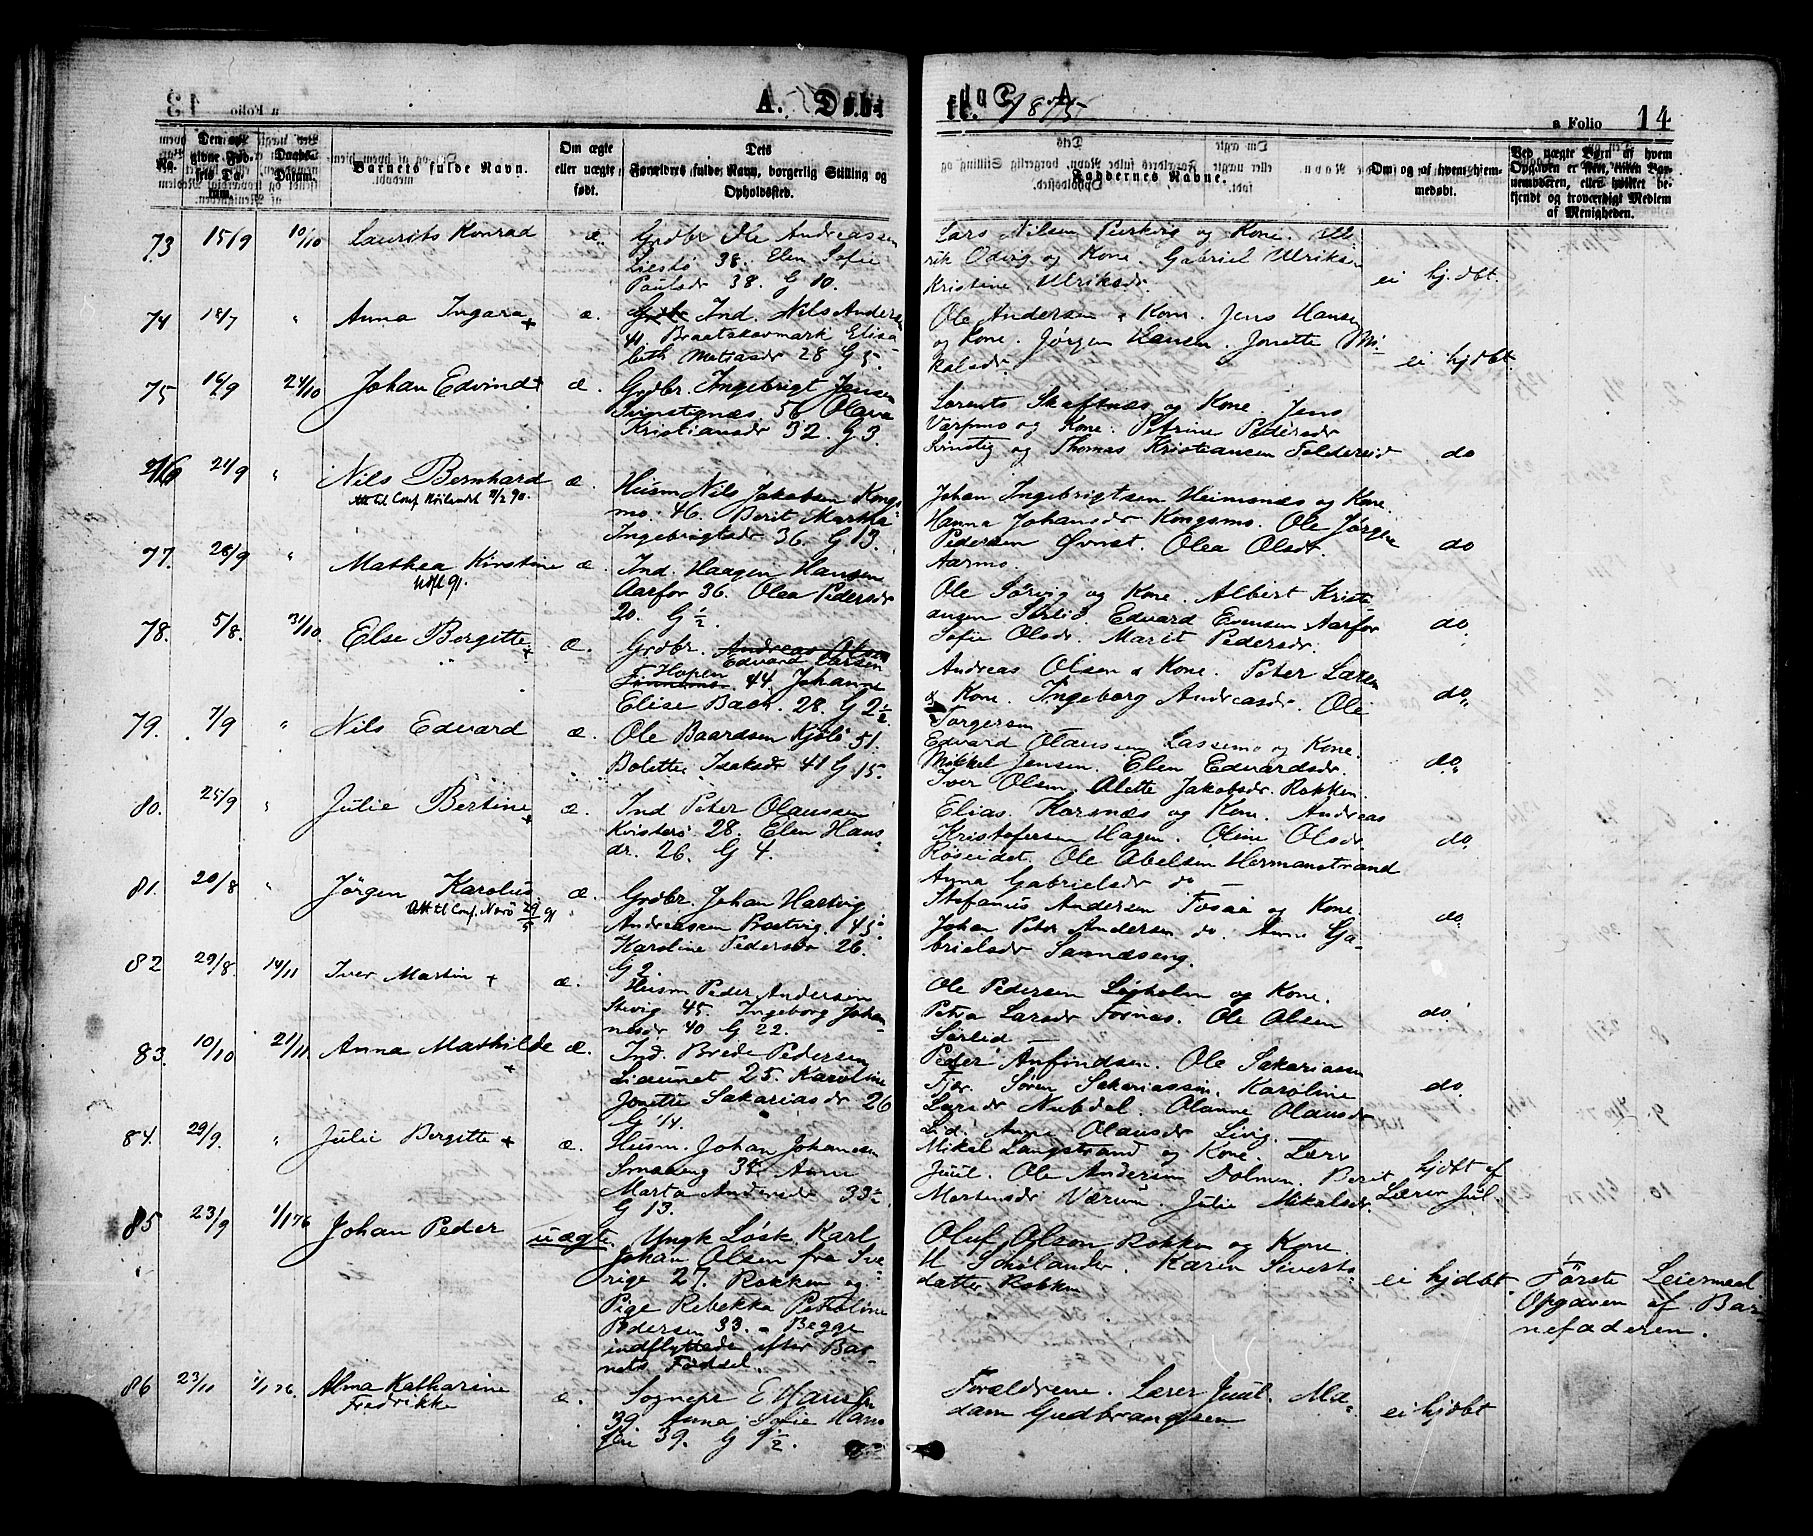 A. Døb- te. 1875
a Folio 14
No.
Den opgivne Fødsels Datum.
Daabs-Datum.
Barnets fulde Navn.
Om ægte eller uægte født.
Dets Forældres fulde Navn, borgerlig Stilling og Opholdssted.
Faddernes Navne.
Om og af hvem hjemmedøbt.
Ved uægte Børn af hvem Opgaven er sket, enten Barnemoderen, eller hvilket bekjendt og troværdigt Medlem af Menigheden.
73 15/9 10/10 Laurits Konrad æ. Grdbr Ole Andreassen
Liestø 38. Elen Sofie
Paulsdr 38. G 10.
Lars Nilsen Peerkvig og Kone. Ul-
rik Odvig og Kone. Gabriel Ulriksen
Kristine Ulriksdr. ei hj.dbt.
74 18/7 " Anna Ingara + æ. Ind. Nils Anders
41. Braatskovmark Elisa-
beth Matiasdr 28 G 5.
Ole Andersen & Kone. Jens Hansen
og Kone. Jørgen Hansen. Jonette Mi-
kalsdr. ei hjdbt.
75 16/9 24/10 Johan Edvind + æ. Grdbr. Ingebrigt Jensen
56 Olava
Kristiansdr 32. G 3.
Lorents Skaftnæs og Kone. Jens
Værpmo og Kone. Petrine Pedersdr
og Thomas Kristiansen Foldereid do
76 24/9 " Nils Bernhard æ.
Att til Conf. 11/2 90.
Husm Nils Jakobsen Kongs-
mo. 46. Berit Martha
Ingebrigtsdr 36 G 13.
Johan Ingebrigtsen Heimsnæs og Kone.
Hanna Johansdr Kongsmo. Ole Jørgen
Pedersen Øvrest. Olea Olsdt.
Aarmo. do
77. 28/9 " Mathea Kirstine æ.
Ind. Haagen Hansen
Aarfor 36. Olea Pedersdr
20. G ½.
Ole Sørvig og Kone. Albert Kristi-
ansen Sørlid. Edvard Evensen Aarfor
Sofie Olsdr. Marit Pedersdr. do.
78. 5/8. 31/10. Else Bergitte + æ. Grdbr. Andreas Olsen
Edvard Larsen
Hopen 44. Johanne
Elise Bach. 28. G 2½
Andreas Olsen & Kone. Peter Larsen
& Kone. Ingeborg Andreasdr. Ole
Torgersen do.
79. 7/9 " Nils Edvard æ. Ole Baardsen Kjølø 51.
Bolette Isaksdr 41 G 15.
Edvard Olaussen Lassemo og Kone.
Mikkel Jensen. Elen Edvardsdr.
Iver Olsen. Alette Jakobsdr. Rokken. do.
80. 25/9 " Julie Bertine + æ. Ind Peter Olaussen
Kvisterø 28. Elen Hans
dr. 26. G 4.
Elias Horsnæs og Kone. Andreas
Kristofersen Hagen. Oline Olsdr.
Røseidet. Ole Abelsen Hermanstrand
Anna Gabrielsdr do do.
81. 20/8 " Jørgen Karolus æ.
Att til Conf. Nærø 29/5 91
Grdbr. Johan Hartvig
Andreassen 45.
Karoline Pedersdr 26.
G 2.
Stefanus Andersen Fosaa og Kone.
Johan Peter Andersen do. Anne Ga-
brielsdr Sandæseng. do.
82 29/8. 14/11 Iver Martin + æ. Husm Peder Andersen
45. Ingeborg Johan-
nesdr 40 G 22.
Ole Pedersen Legholm og Kone.
Petra Larsdr Fornæs. Ole Olsen
Sørlid — do.
83. 10/10 21/11 Anna Mathilde + æ. Ind. Brede Pedersen
Liaunet 25. Karoline
Jonette Sakariasdr 26
G 14.
Peder Anfindsen. Ole Sakariassen
Søren Sakariassen. Karoline
Larsdr Nubdal. Olanne Olausdr
Lid. Anne Olausdr Livig — do.
84. 29/9. " Julie Bergitte + æ. Husm. Johan Johannesen
Smaaeng 35. Anne
Marta Andersdr 33½
G 13.
Mikal Langstrand og Kone. Lærer
Juul. Ole Andersen Dolmen. Berit
Mortensdr Værum. Julie Mikalsdr. hjdbt af
Lærer Jul
85 23/9 1/1 76 Johan Peder uægte. Ungk Løsk. Karl
Johan Olsen fra Sve-
rige 27. Rokken og
Pige Rebekka Petroline
Pedersen 33. Begge
indflyttede efter Bar-
nets Fødsel.
Oluf Olson Rokken og Kone
Karen Siverts-
datter Rokken ei hjdbt.
Første Leiermaal
Opgaven af Bar-
nefaderen.
86 23/11 1/1 76. Alma Katharine
Fredrikke æ. Sognepr
39 Anna Sofie
39. G 9½.
Forældrene. Lærer Juul. Ma-
dam Gudbrandsen ei hjdbt